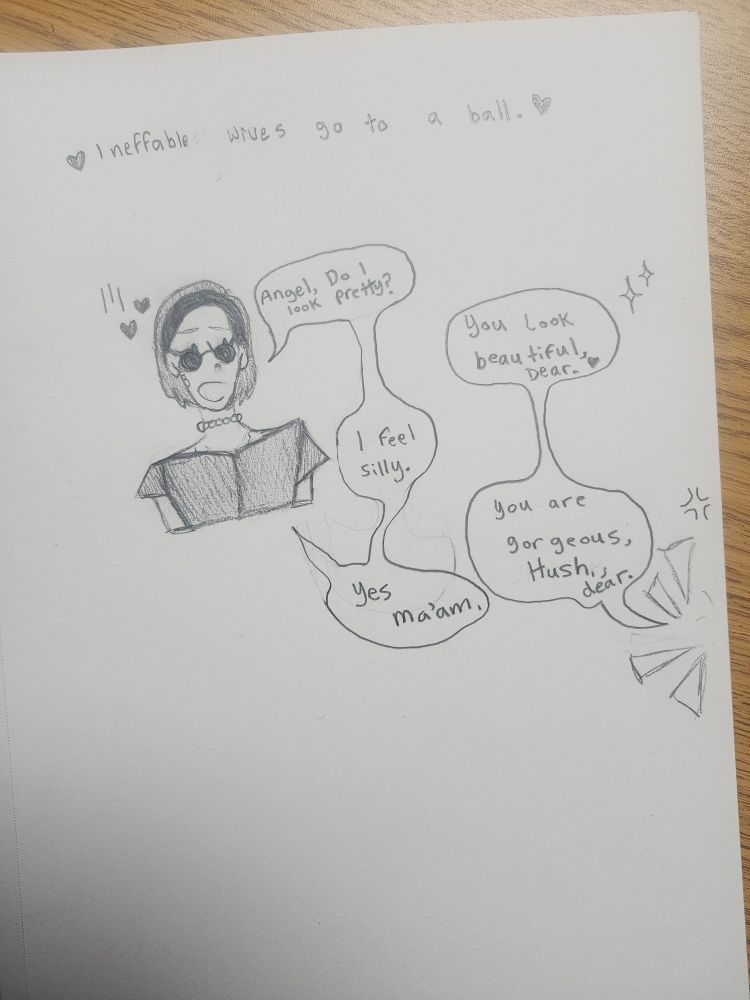 Ineffable wives go to a ball.
Angel, Do I
look pretty?
You Look
beautiful,
Dear.
I feel
silly.
You are
gorgeous,
Hush,
dear.
Yes
ma'am.